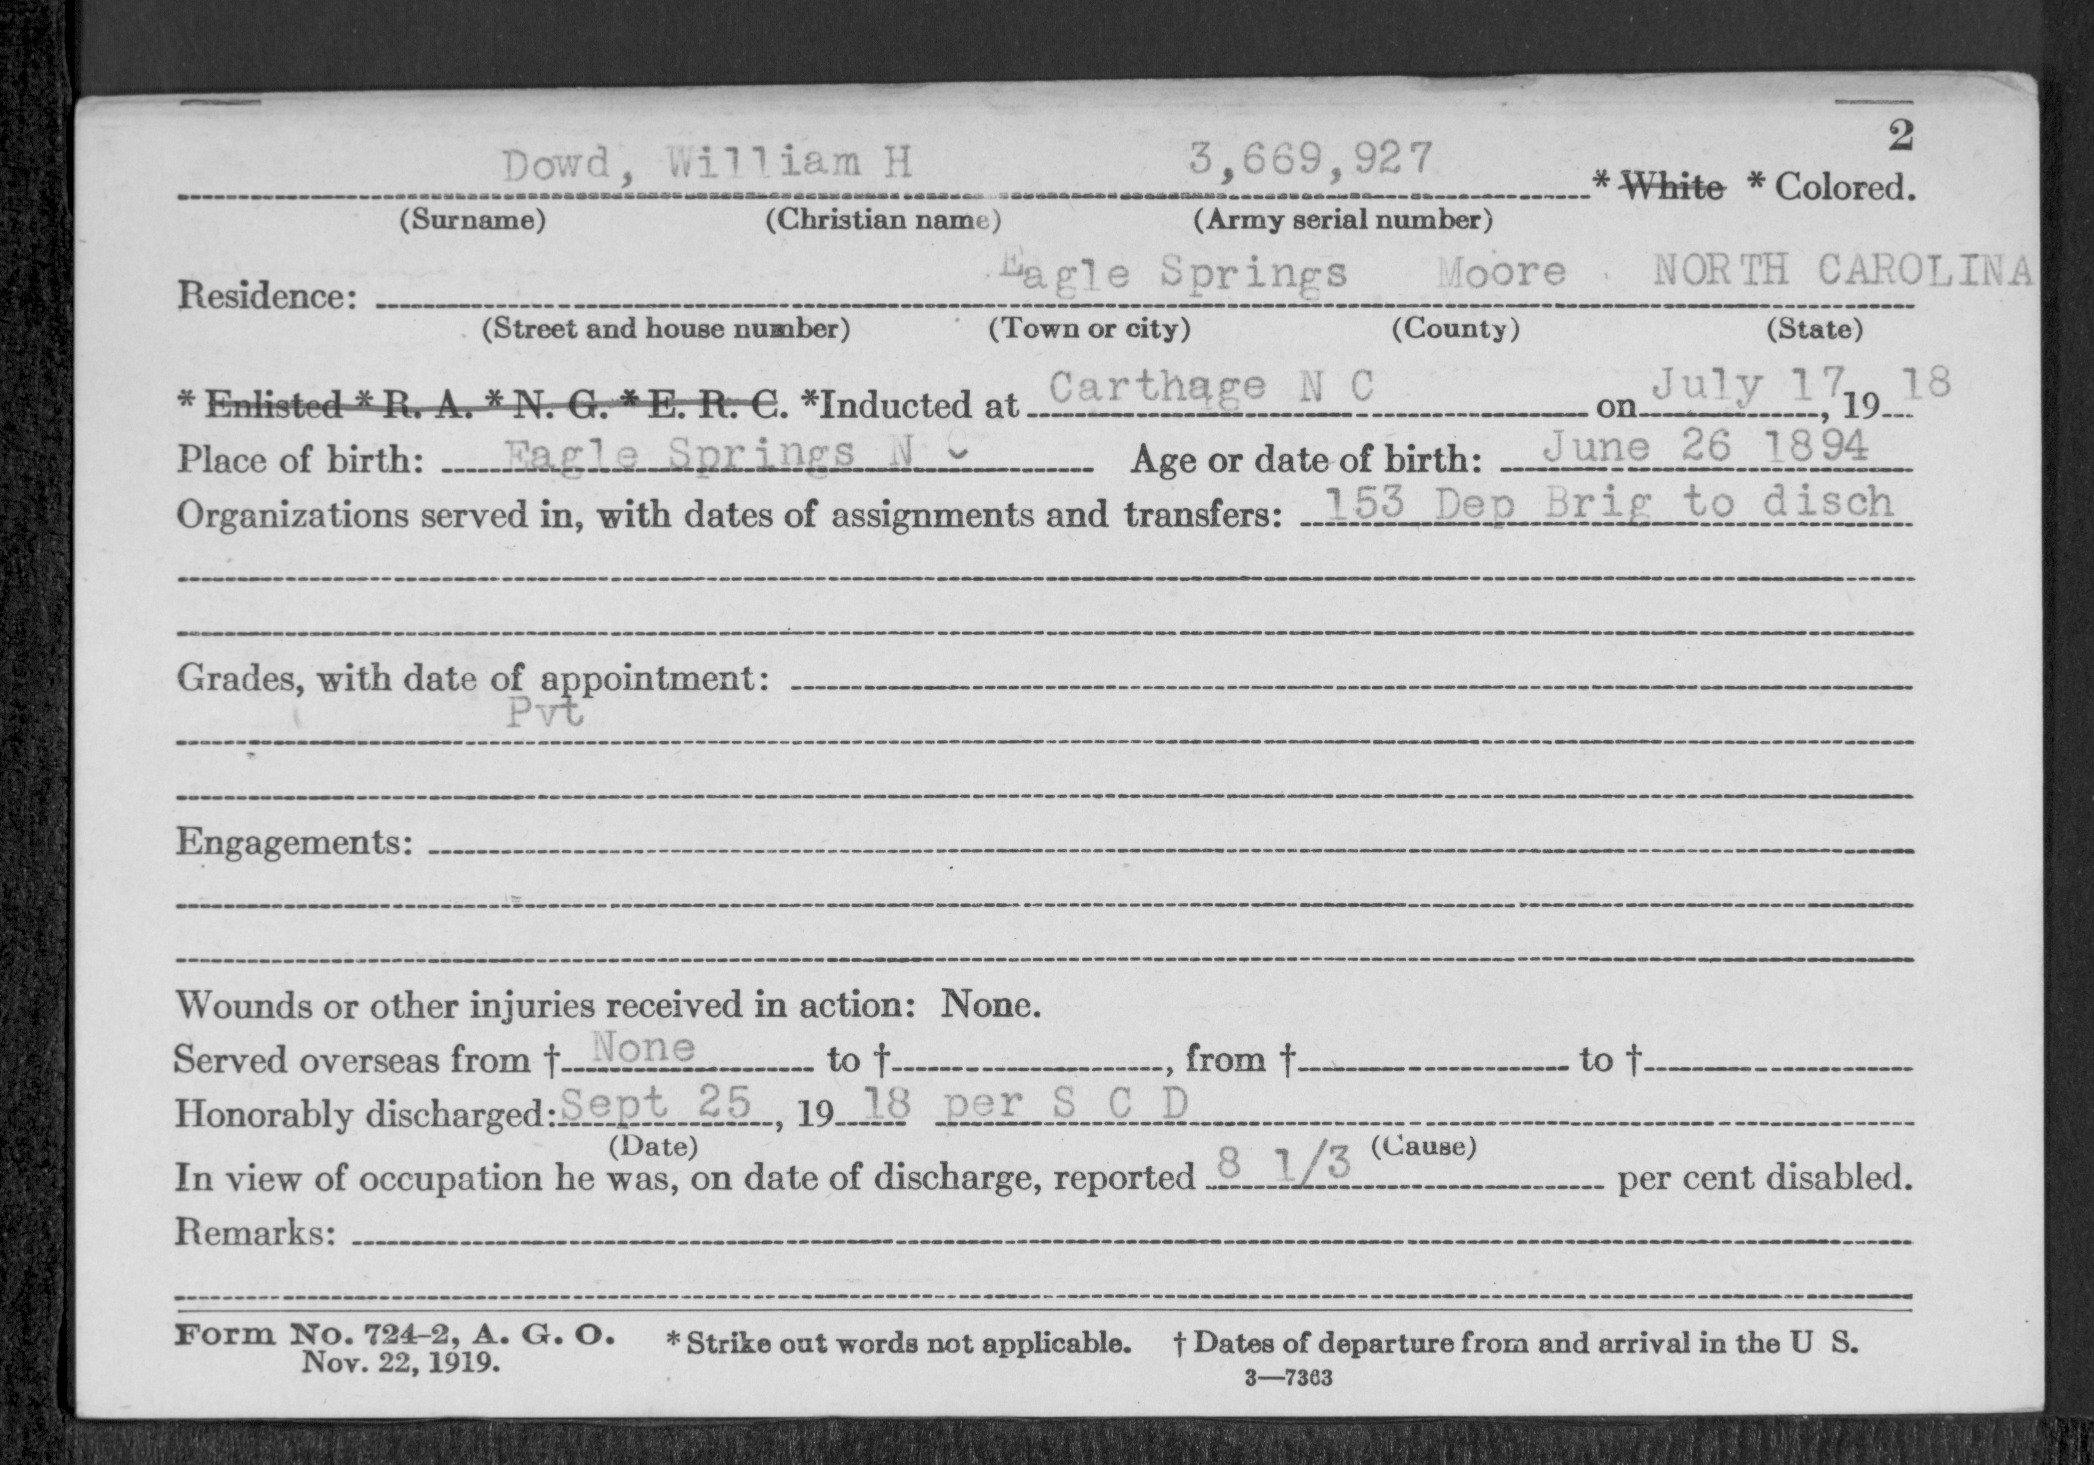 2
Dowd, William H 3,669,927 * White * Colored.
(Surname) (Christian name) (Army serial number)
Eagle Springs Moore NORTH CAROLINA
Residence:
(Street and house number) (Town or city) (County) (State)
* Enlisted * R. A. * N. G. * E. R. C. *Inducted at Carthage N C on July 17, 19 18
Place of birth: Eagle Springs N C Age or date of birth: June 26 1894
Organizations served in, with dates of assignments and transfers: 153 Dep Brig to disch
Grades, with date of appointment:
Pvt
Engagements:
Wounds or other injuries received in action: None.
Served overseas from † None to †, from † to †
Honorably discharged: Sept 25, 19 18 per S C D
(Date) (Cause)
In view of occupation he was, on date of discharge, reported 8 1/3 per cent disabled.
Remarks:
Form No. 724-2, A. G. O. * Strike out words not applicable. † Dates of departure from and arrival in the U S.
Nov. 22, 1919. 3—7363